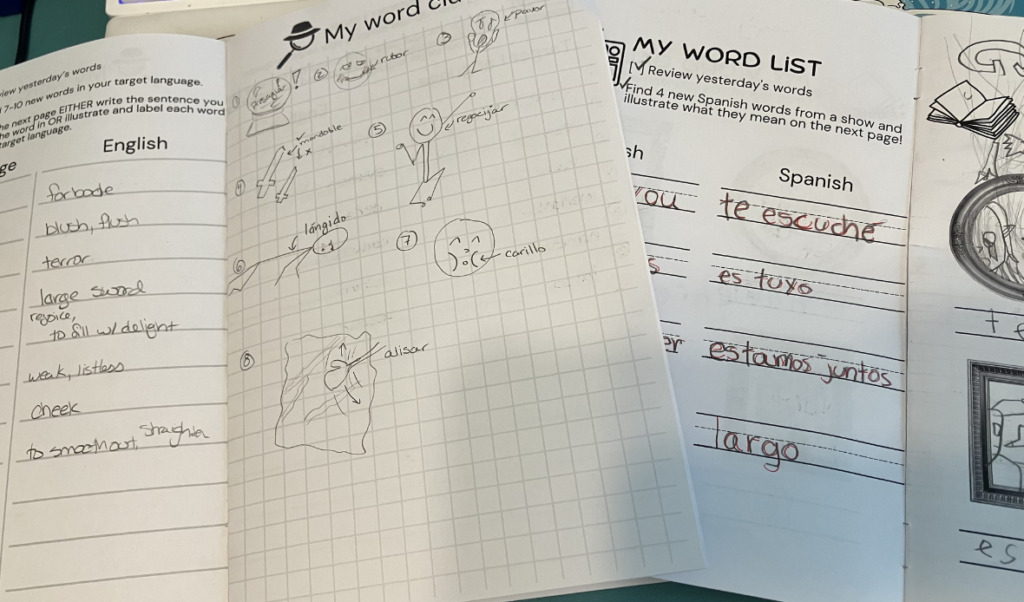 view yesterday's words
7-10 new words in your target language.
next page EITHER write the sentence you
the word in OR illustrate and label each word
target language.
English
forbode
blush, flush
terror
large sword
rejoice,
to fill w/ delight
weak, listless
cheek
to smooth out, straighten
My word
① presagiar !
② rubor
③ pavor
④ mandoble
x
⑤ regocijar
⑥ lángido
⑦ carillo
⑧ alisar
MY WORD LIST
Review yesterday's words
Find 4 new Spanish words from a show and
illustrate what they mean on the next page!
Spanish
you
te escuché
es tuyo
er
estamos juntos
largo
es